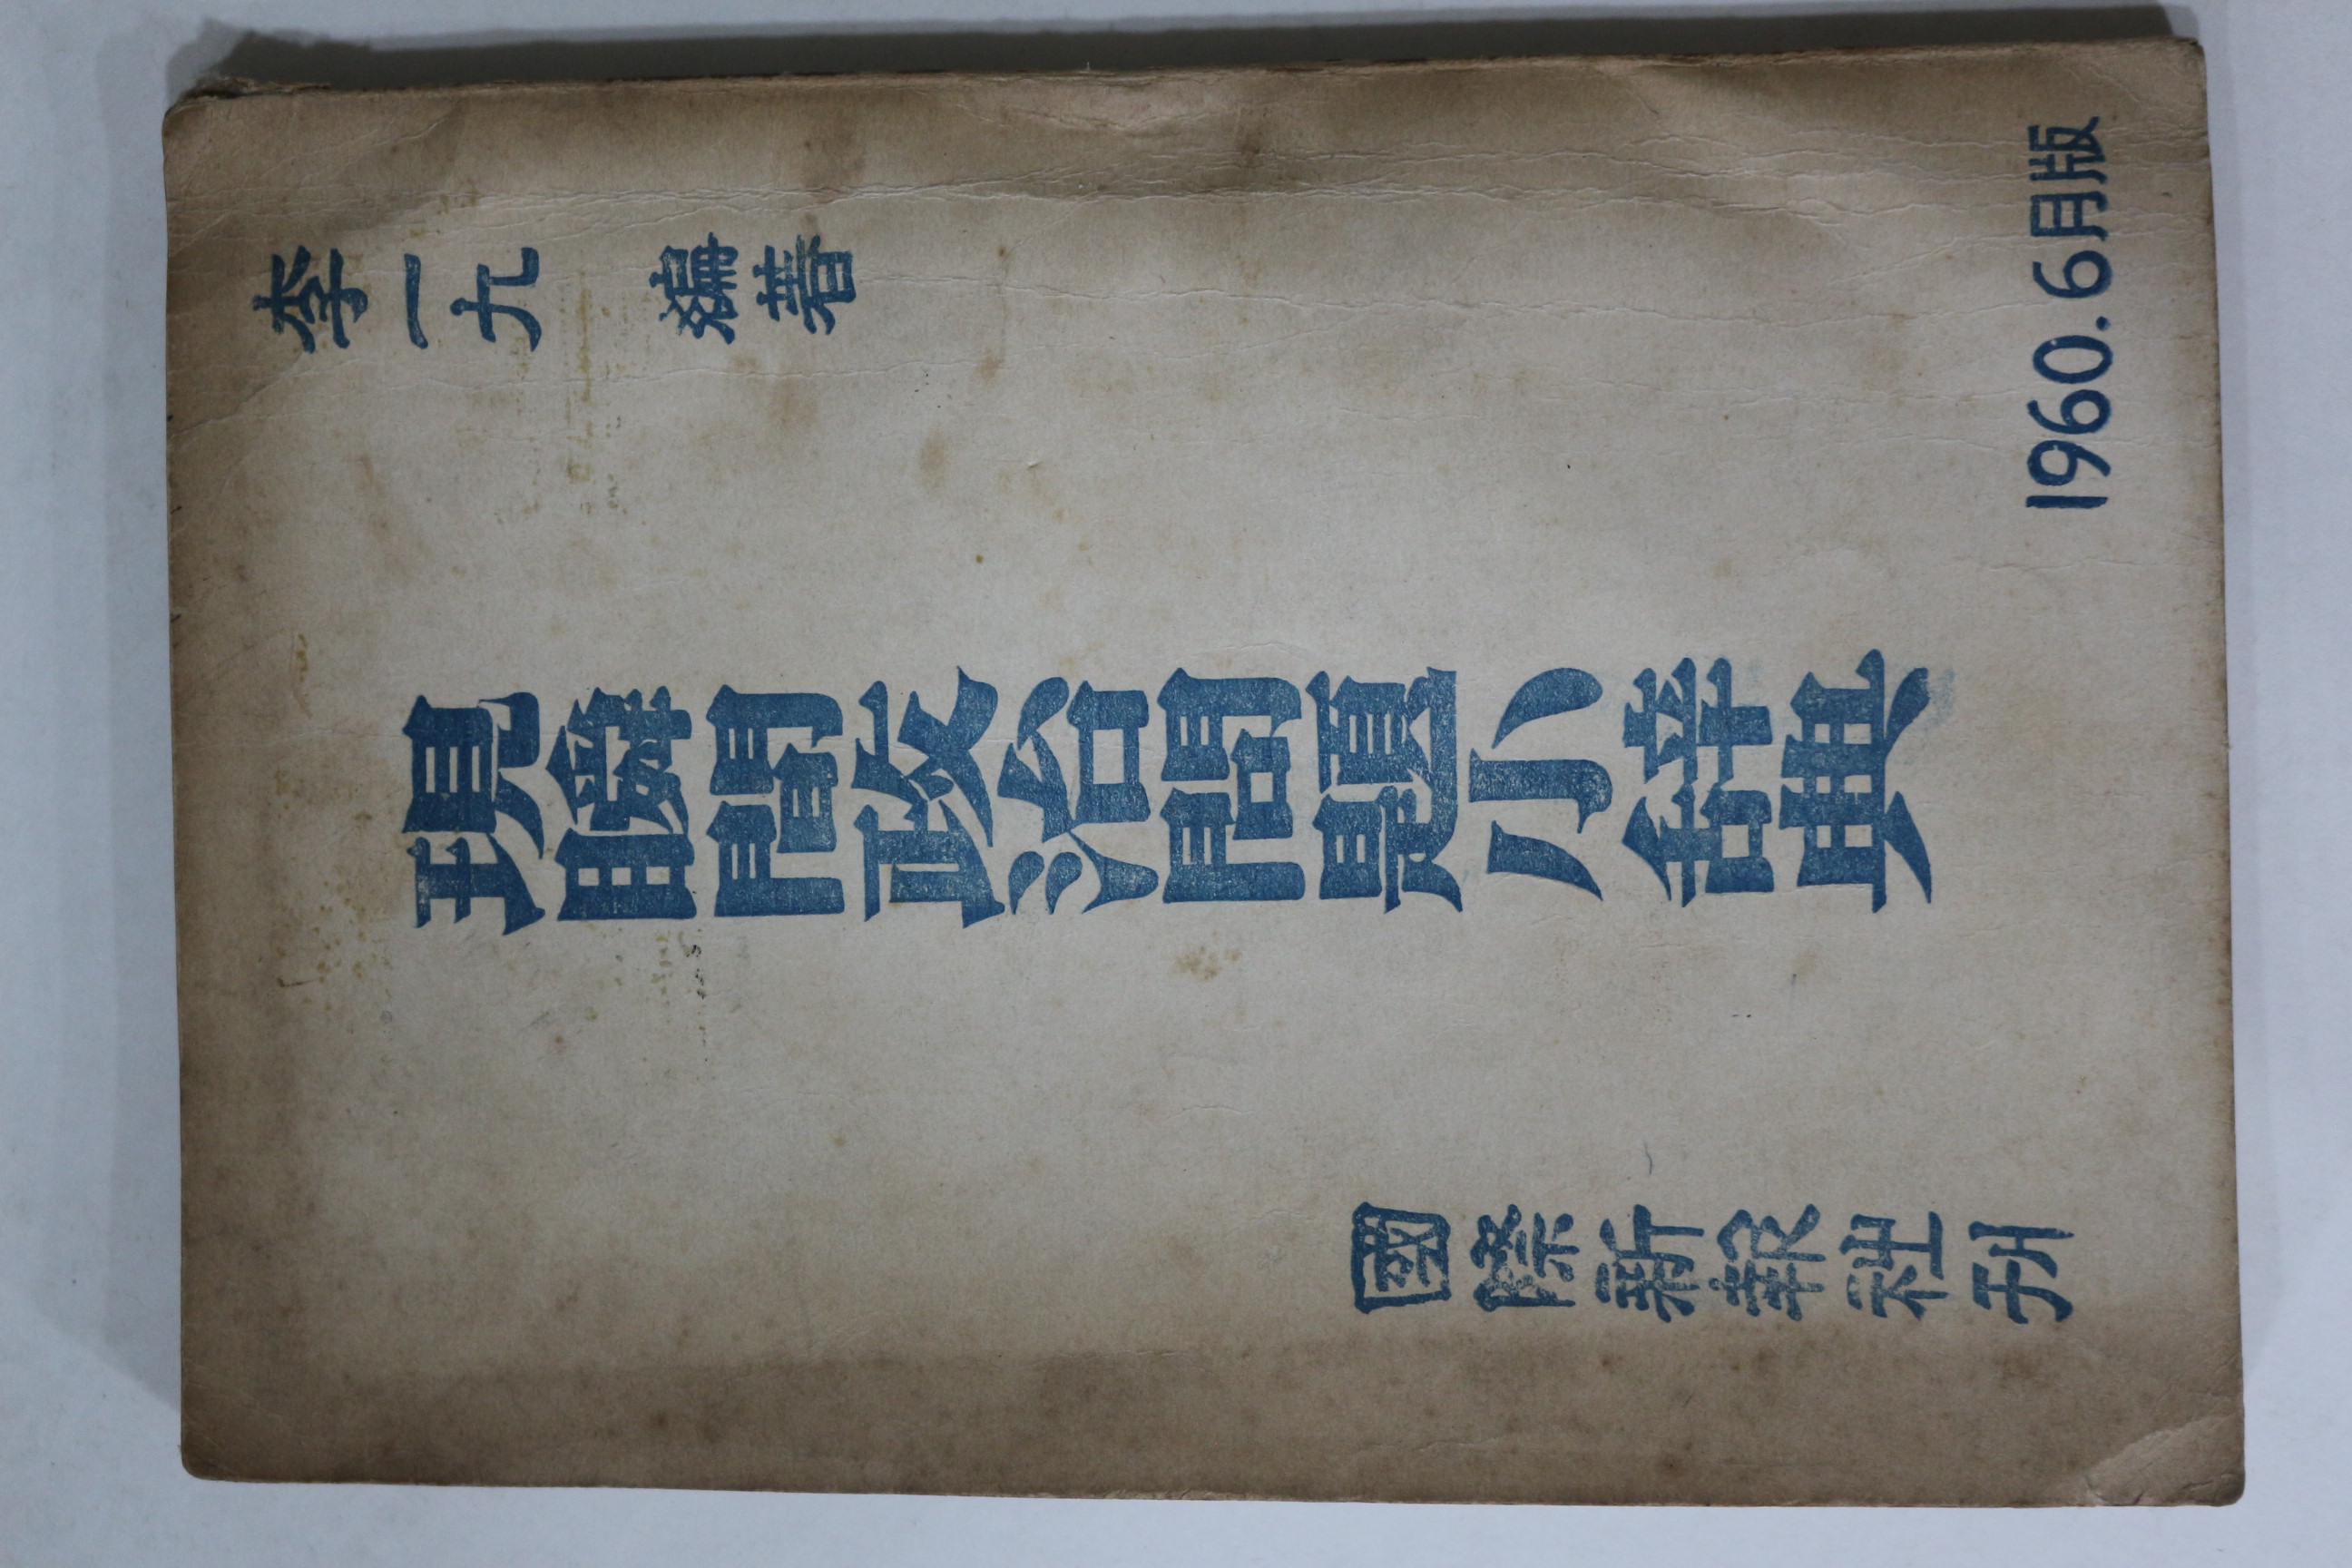 李一九 編著
現瞬間政治問題小辭典
國際新報社刊
1960.6月版